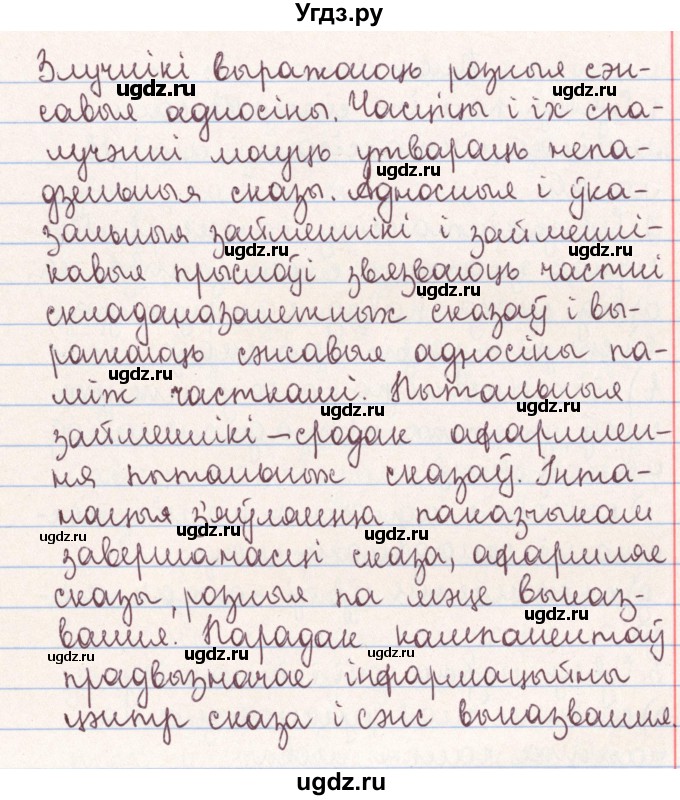 Угдз.ру
Злучнікі выражаюць розныя сэн-
савыя адносіны. Часціцы і іх спа-
лучэнні могуць утвараць непа-
дзельныя сказы. Адносныя і ўка-
зальныя займеннікі і займенні-
кавыя прыслоўі звязваюць часткі
складаназалежных сказаў і вы-
ражаюць сэнсавыя адносіны па-
між часткамі. Пытальныя
займеннікі – сродак афармлен-
ня пытальных сказаў. Інта-
нацыя з'яўляецца паказчыкам
завершанасці сказа, афармляе
сказы, розныя па мэце выказ-
вання. Парадак кампанентаў
прадвызначае інфармацыйны
цэнтр сказа і сэнс выказвання.
ugdz.ru
ugdz.ru
ugdz.ru
ugdz.ru
ugdz.ru
ugdz.ru
ugdz.ru
ugdz.ru
ugdz.ru
ugdz.ru
ugdz.ru
ugdz.ru
ugdz.ru
ugdz.ru
ugdz.ru
ugdz.ru
ugdz.ru
ugdz.ru